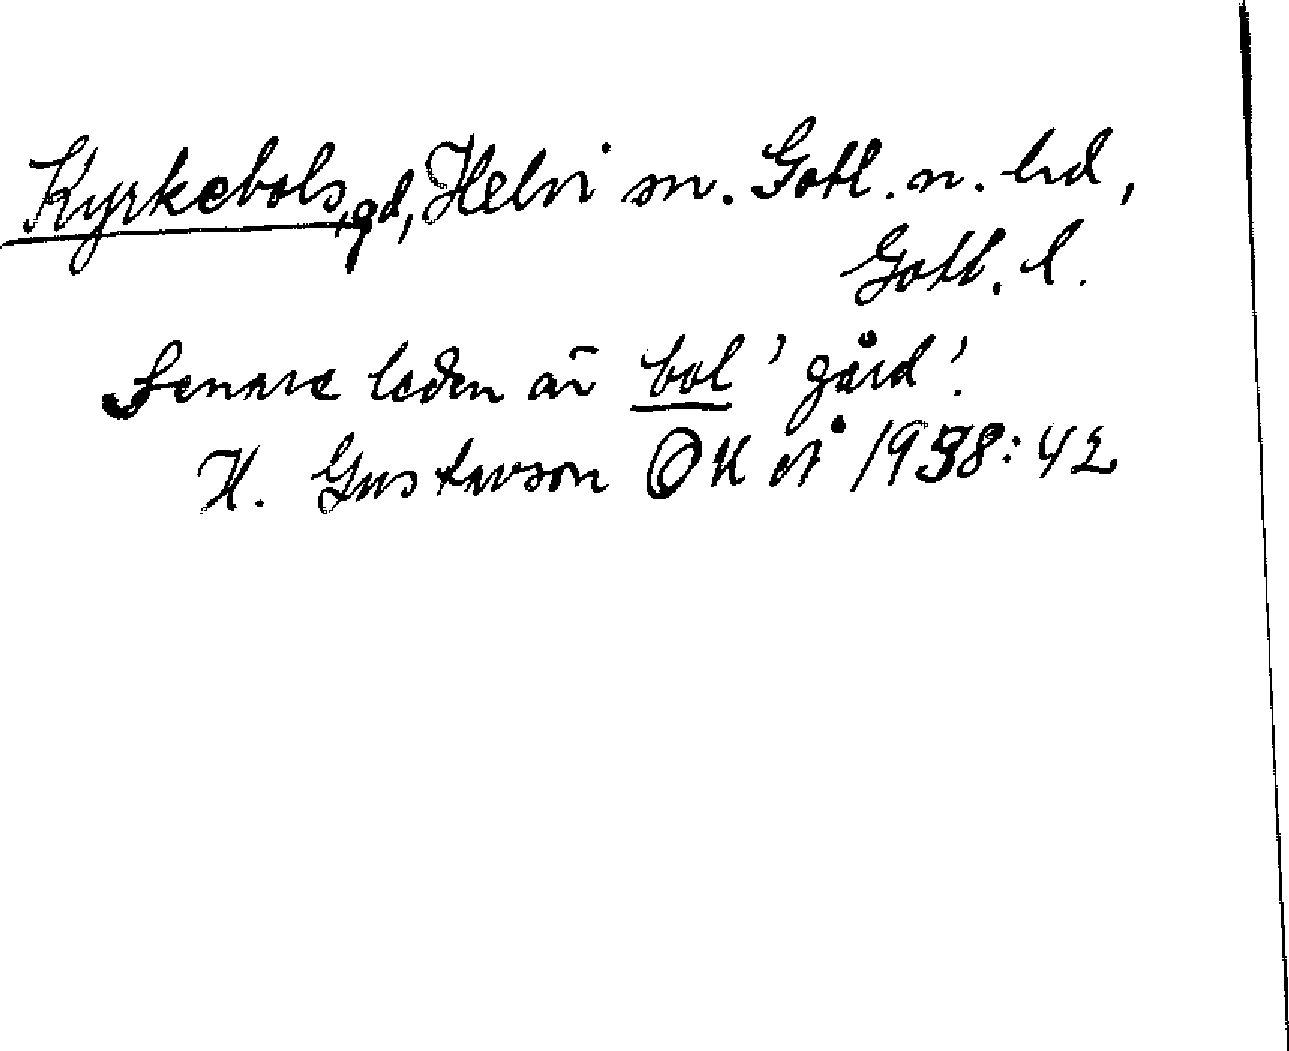 Kyrkebols, gd, Helvi sn. Gotl. n. hd,
Gotl. l.
Senare leden är bol 'gård'.
H. Gustavson OK å 1938:42